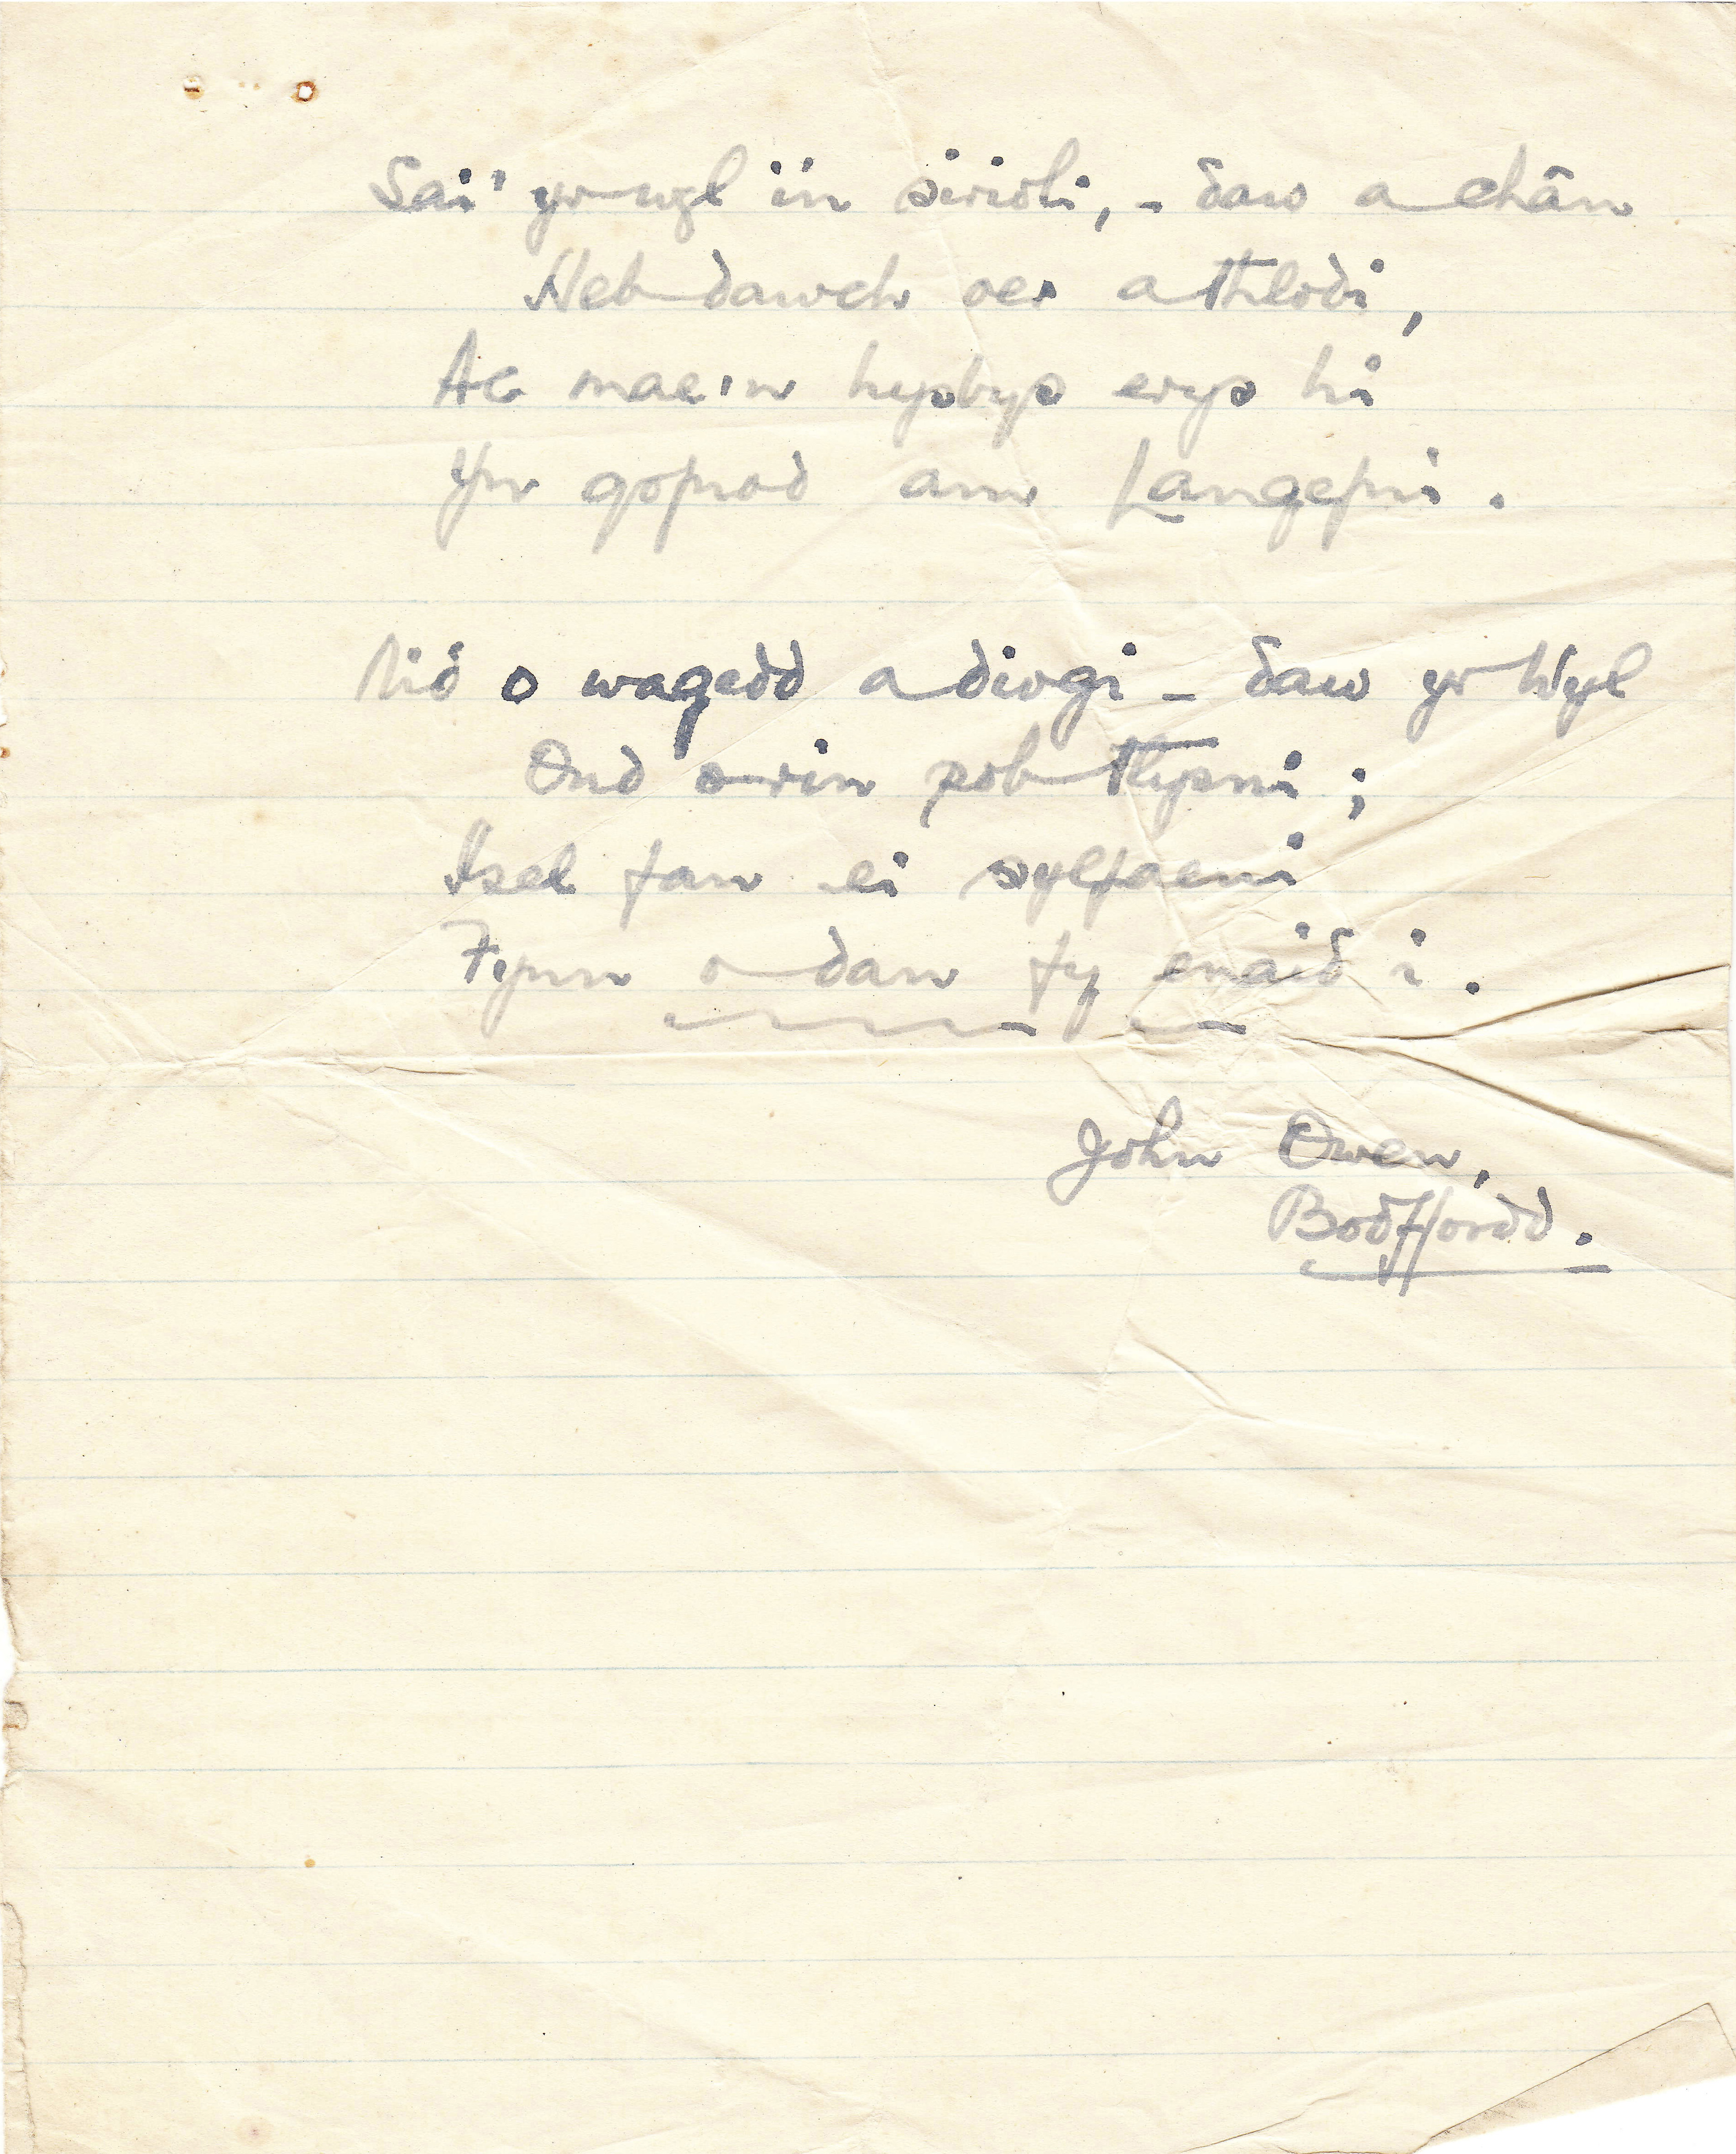 Sai' yr wyl i'n sirioli, - daw a chân
Heb dawch oer a thlodi,
Ac mae'n hysbys erys hi
Yn gofnod am Langefni.
Nid o wagedd a diogi - daw yr Wyl
Ond o rin pob tlysni;
Isel fan ei sylfaeni
Fynn o dan fy enaid i.
John Owen,
Bodffordd.